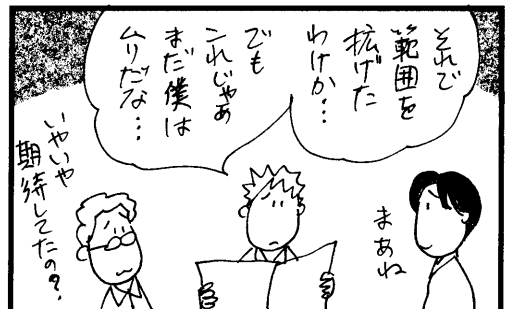 それで
範囲を
拡げた
わけか…
でも
これじゃあ
まだ僕は
ムリだな…
まあね
いやいや
期待してたの?